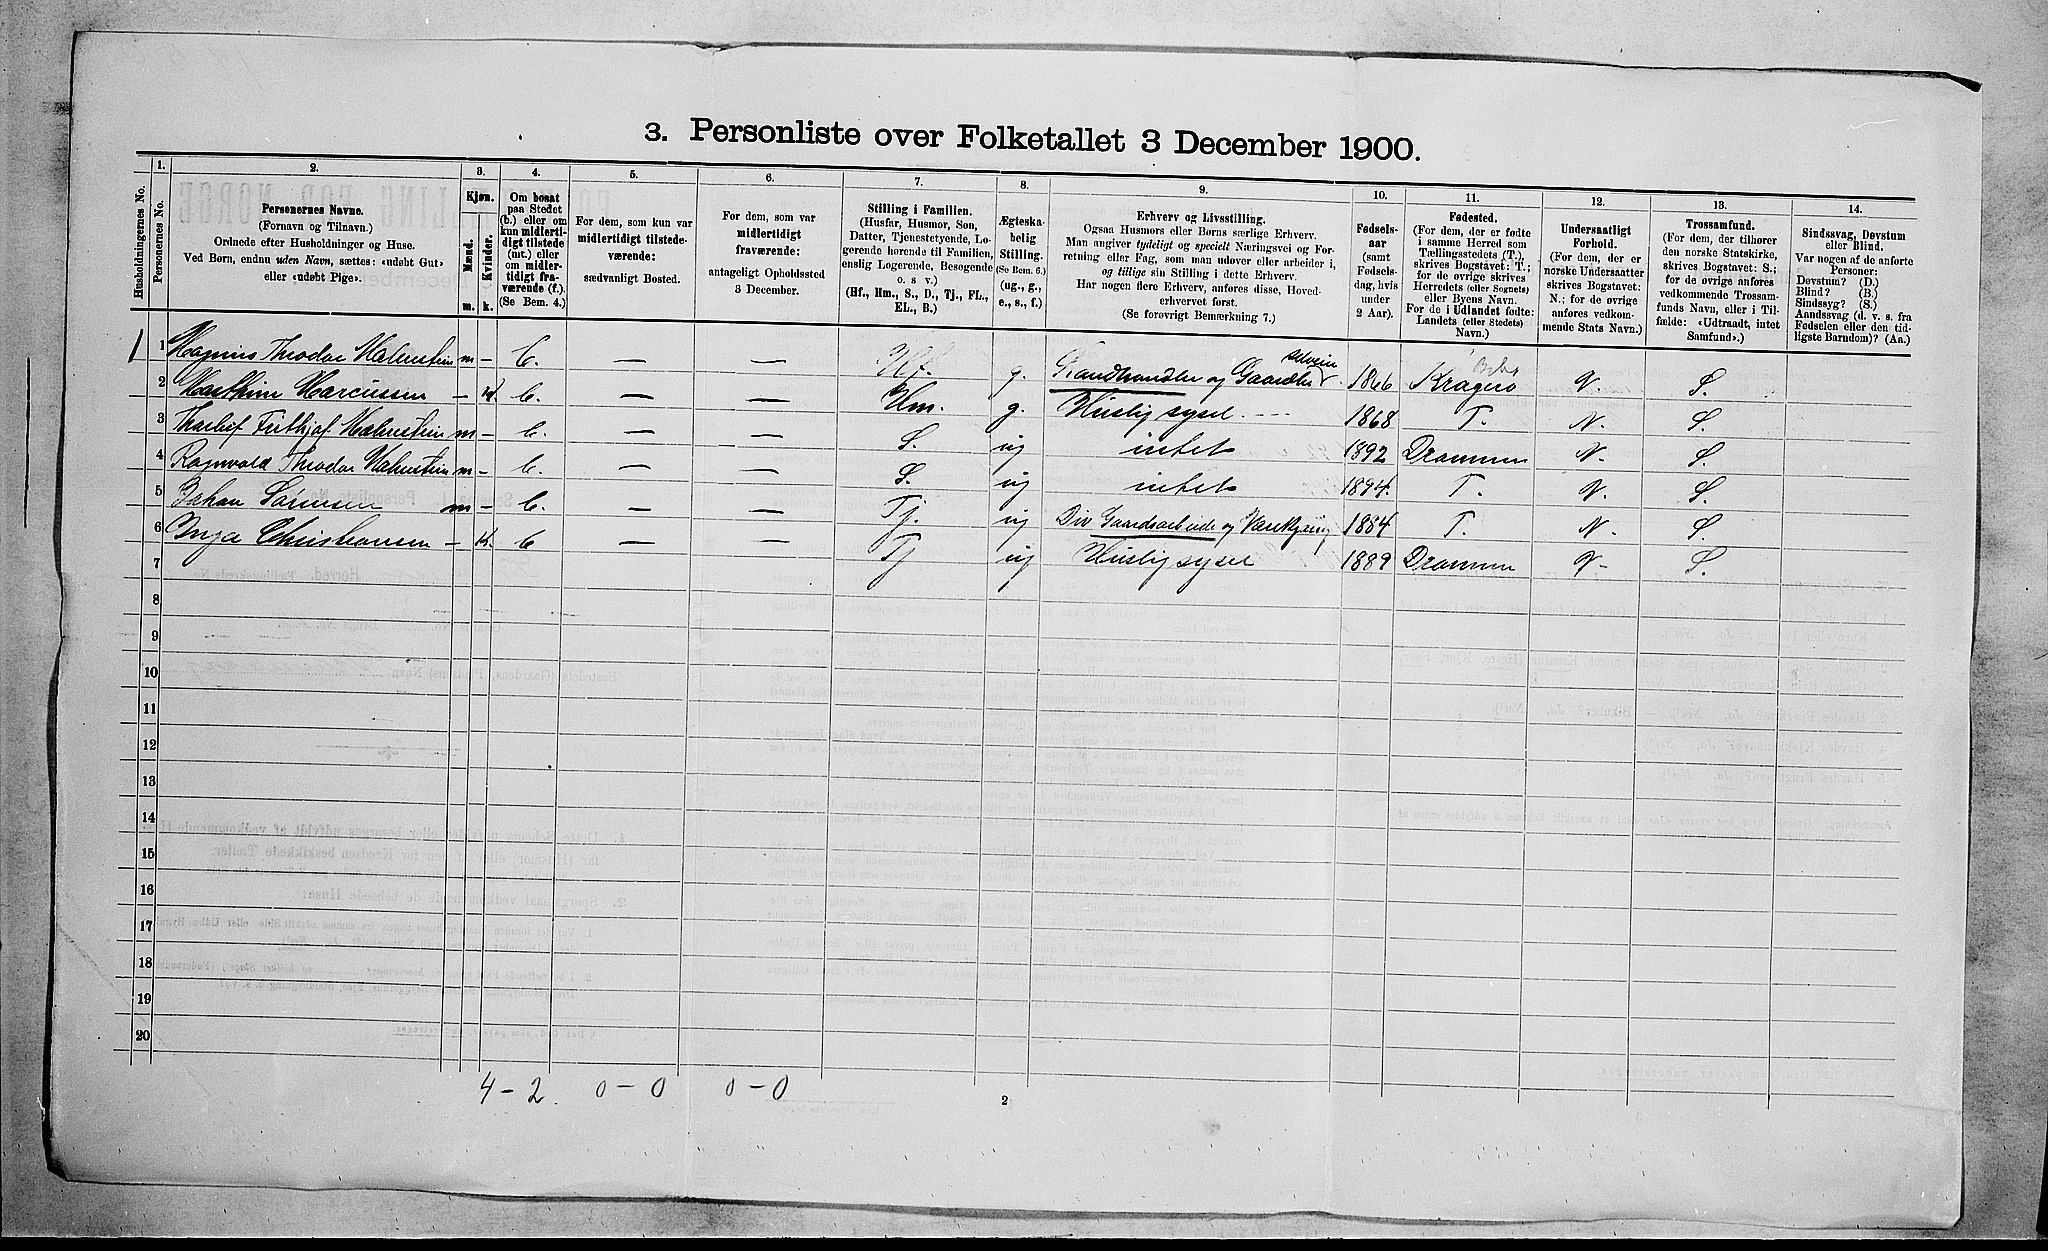 3. Personliste over Folketallet 3 December 1900.
1. 2. 3. 4. 5. 6. 7. 8. 9. 10. 11. 12. 13. 14.
Husholdningernes No.
Personernes No.
Personernes Navne.
(Fornavn og Tilnavn.)
Ordnede efter Husholdninger og Huse.
Ved Børn, endnu uden Navn, sættes: «udøbt Gut»
eller «udøbt Pige».
Kjøn.
Mænd.
Kvinder.
m. k.
Om bosat
paa Stedet
(b.) eller om
kun midlerti-
digt tilstede
(mt.) eller
om midler-
tidigt fra-
værende (f.).
(Se Bem. 4.)
For dem, som kun var
midlertidigt tilstede-
værende:
sædvanligt Bosted.
For dem, som var
midlertidigt
fraværende:
antageligt Opholdssted
3 December.
Stilling i Familien.
(Husfar, Husmor, Søn,
Datter, Tjenestetyende, Lo-
gerende hørende til Familien,
enslig Logerende, Besøgende
o. s v.)
(Hf., Hm., S., D., Tj., FL.,
EL., B.)
Ægteska-
belig
Stilling.
(Se Bem. 6.)
(ug., g.,
e., s., f.)
Erhverv og Livsstilling.
Ogsaa Husmors eller Børns særlige Erhverv.
Man angiver tydeligt og specielt Næringsvei og For-
retning eller Fag, som man udøver eller arbeider i,
og tillige sin Stilling i dette Erhverv.
Har nogen flere Erhverv, anføres disse, Hoved-
erhvervet først.
(Se forøvrigt Bemærkning 7.)
Fødsels-
aar
(samt
Fødsels-
dag, hvis
under
2 Aar).
Fødested.
(For dem, der er fødte
i samme Herred som
Tællingsstedets (T.),
skrives Bogstavet: T.;
for de øvrige skrives
Herredets (eller Sognets)
eller Byens Navn.
For de i Udlandet fødte:
Landets (eller Stedets)
Navn.)
Undersaatligt
Forhold.
(For dem, der er
norske Undersaatter
skrives Bogstavet:
N.; for de øvrige
anføres vedkom-
mende Stats Navn.)
Trossamfund.
(For dem, der tilhører
den norske Statskirke,
skrives Bogstavet: S.;
for de øvrige anføres
vedkommende Trossam-
funds Navn, eller i Til-
fælde: «Udtraadt, intet
Samfund».)
Sindssvag, Døvstum
eller Blind.
Var nogen af de anførte
Personer:
Døvstum? (D.)
Blind? (B.)
Sindssyg? (S.)
Aandssvag (d. v. s. fra
Fødselen eller den tid-
ligste Barndom)? (Aa.)
1 1 Magnus Theodor Malmstein m – b. — — Hf. g. og Gaardbr 1866 Kragerø N. S.
2 Marthine Marcussen – k b. — — Hm. g. Huslig sysel. 1868 T. N. S.
3 Frithjof Malmstein m – b. — — S. ug intet 1892 Drammen N. S.
4 Ragnvald Theodor Malmstein m – b. — — S. ug intet 1894. T. N. S.
5 Johan Sørensen m – b. — — Tj. ug Div Gaardsarbeide og 1884 T. N. S.
6 Inga Christiansen – k. b — — Tj ug Huslig sysel 1889 Drammen N. S.
7
8
9
10
11
12
13
14
15
16
17
18
19
20
4 – 2 0 – 0 0 – 0
2